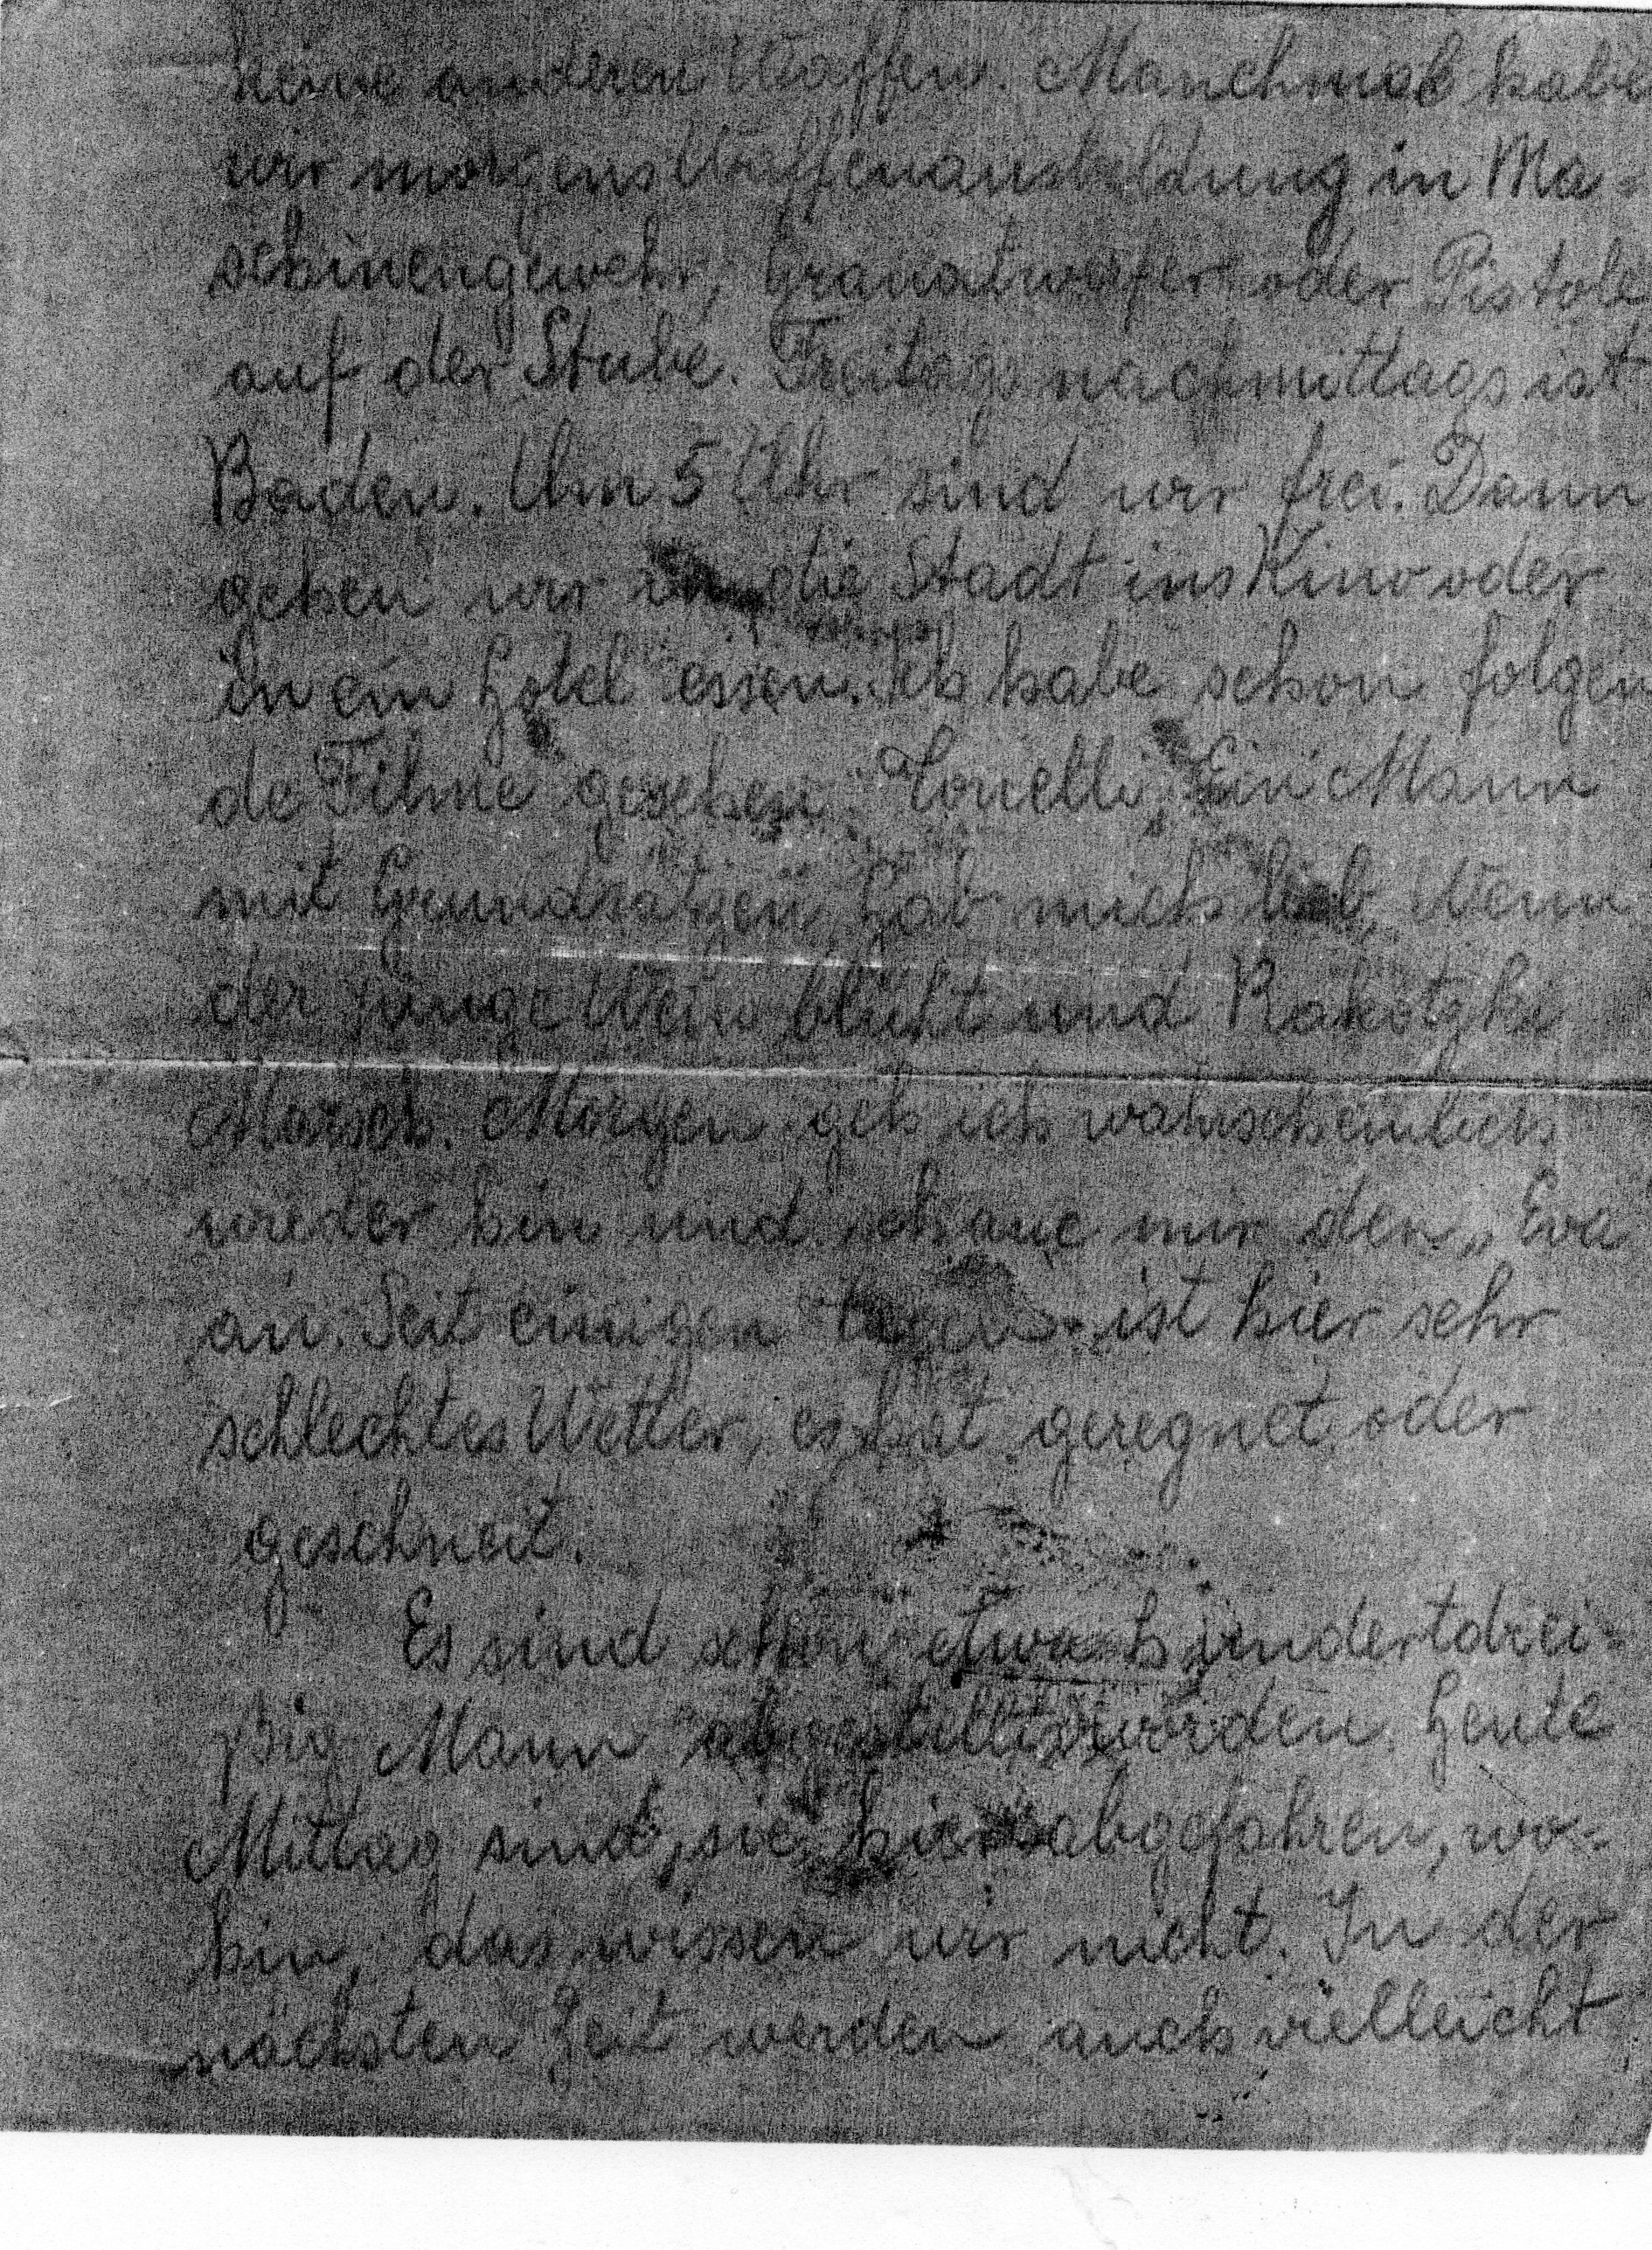 keine anderen Waffen. Manchmal habe
wir morgens Waffenausbildung in Ma=
schinengewehr, Granatwerfer oder Pistole
auf der Stube. Freitags nachmittags ist
Baden. Um 5 Uhr sind wir frei. Dann
gehen wir in die Stadt ins Kino oder
in ein Hotel essen. Ich habe schon folgen
de Filme gesehen: Tonelli, Ein Mann
mit Grundsätzen, Hab mich lieb, Wenn
der junge Wein blüht und Rakotzky
Marsch. Morgen geh ich wahrscheinlich
wieder hin und schaue mir den „Eva
an. Seit einigen Tagen ist hier sehr
schlechtes Wetter, es hat geregnet oder
geschneit.
Es sind schon etwa hundertdrei=
ßig Mann abgestellt worden. Heute
Mittag sind sie hier abgefahren, wo=
hin, das wissen wir nicht. In der
nächsten Zeit werden auch vielleicht